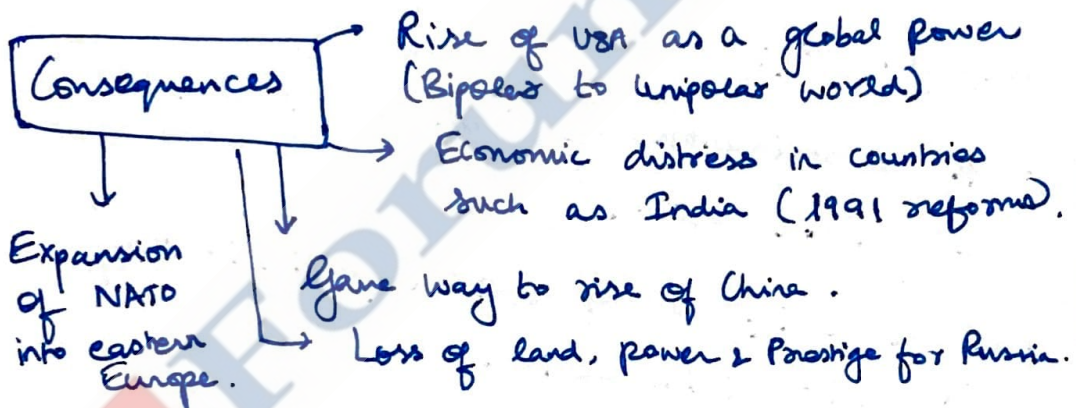 Consequences
Rise of USA as a global power
(Bipolar to unipolar world)
Economic distress in countries
such as India (1991 reforms).
Expansion
of NATO
into eastern
Europe.
Gave way to rise of China.
Loss of land, power & Prestige for Russia.
Forum